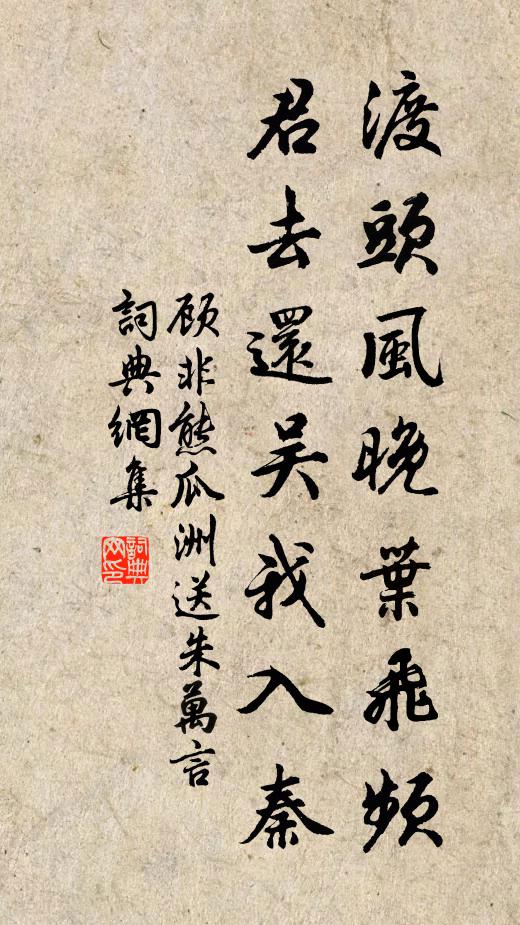 渡頭風晚葉飛頻
君去還吳我入秦
顾非熊瓜洲送朱萬言
詞典網集
詞典網印